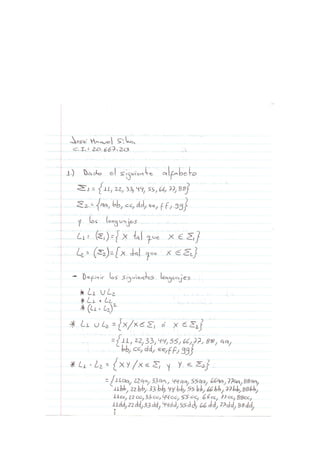 José Manuel Silva
C.I.: 20.667.213
1.) Dado el siguiente alfabeto
Σ1 = {11, 22, 33, 44, 55, 66, 77, 88}
Σ2 = {aa, bb, cc, dd, ee, ff, gg}
y los lenguajes
L1 = (Σ1) = {x tal que x ∈ Σ1}
L2 = (Σ2) = {x tal que x ∈ Σ2}
- Definir los siguientes lenguajes
* L1 ∪ L2
* L1 · L2
* (L1 · L2)²
* L1 ∪ L2 = {x/x ∈ Σ1 ó x ∈ Σ2}
= {11, 22, 33, 44, 55, 66, 77, 88, aa,
bb, cc, dd, ee, ff, gg}
* L1 · L2 = {xy/x ∈ Σ1 y y ∈ Σ2}
= {11aa, 22aa, 33aa, 44aa, 55aa, 66aa, 77aa, 88aa,
11bb, 22bb, 33bb, 44bb, 55bb, 66bb, 77bb, 88bb,
11cc, 22cc, 33cc, 44cc, 55cc, 66cc, 77cc, 88cc,
11dd, 22dd, 33dd, 44dd, 55dd, 66dd, 77dd, 88dd,